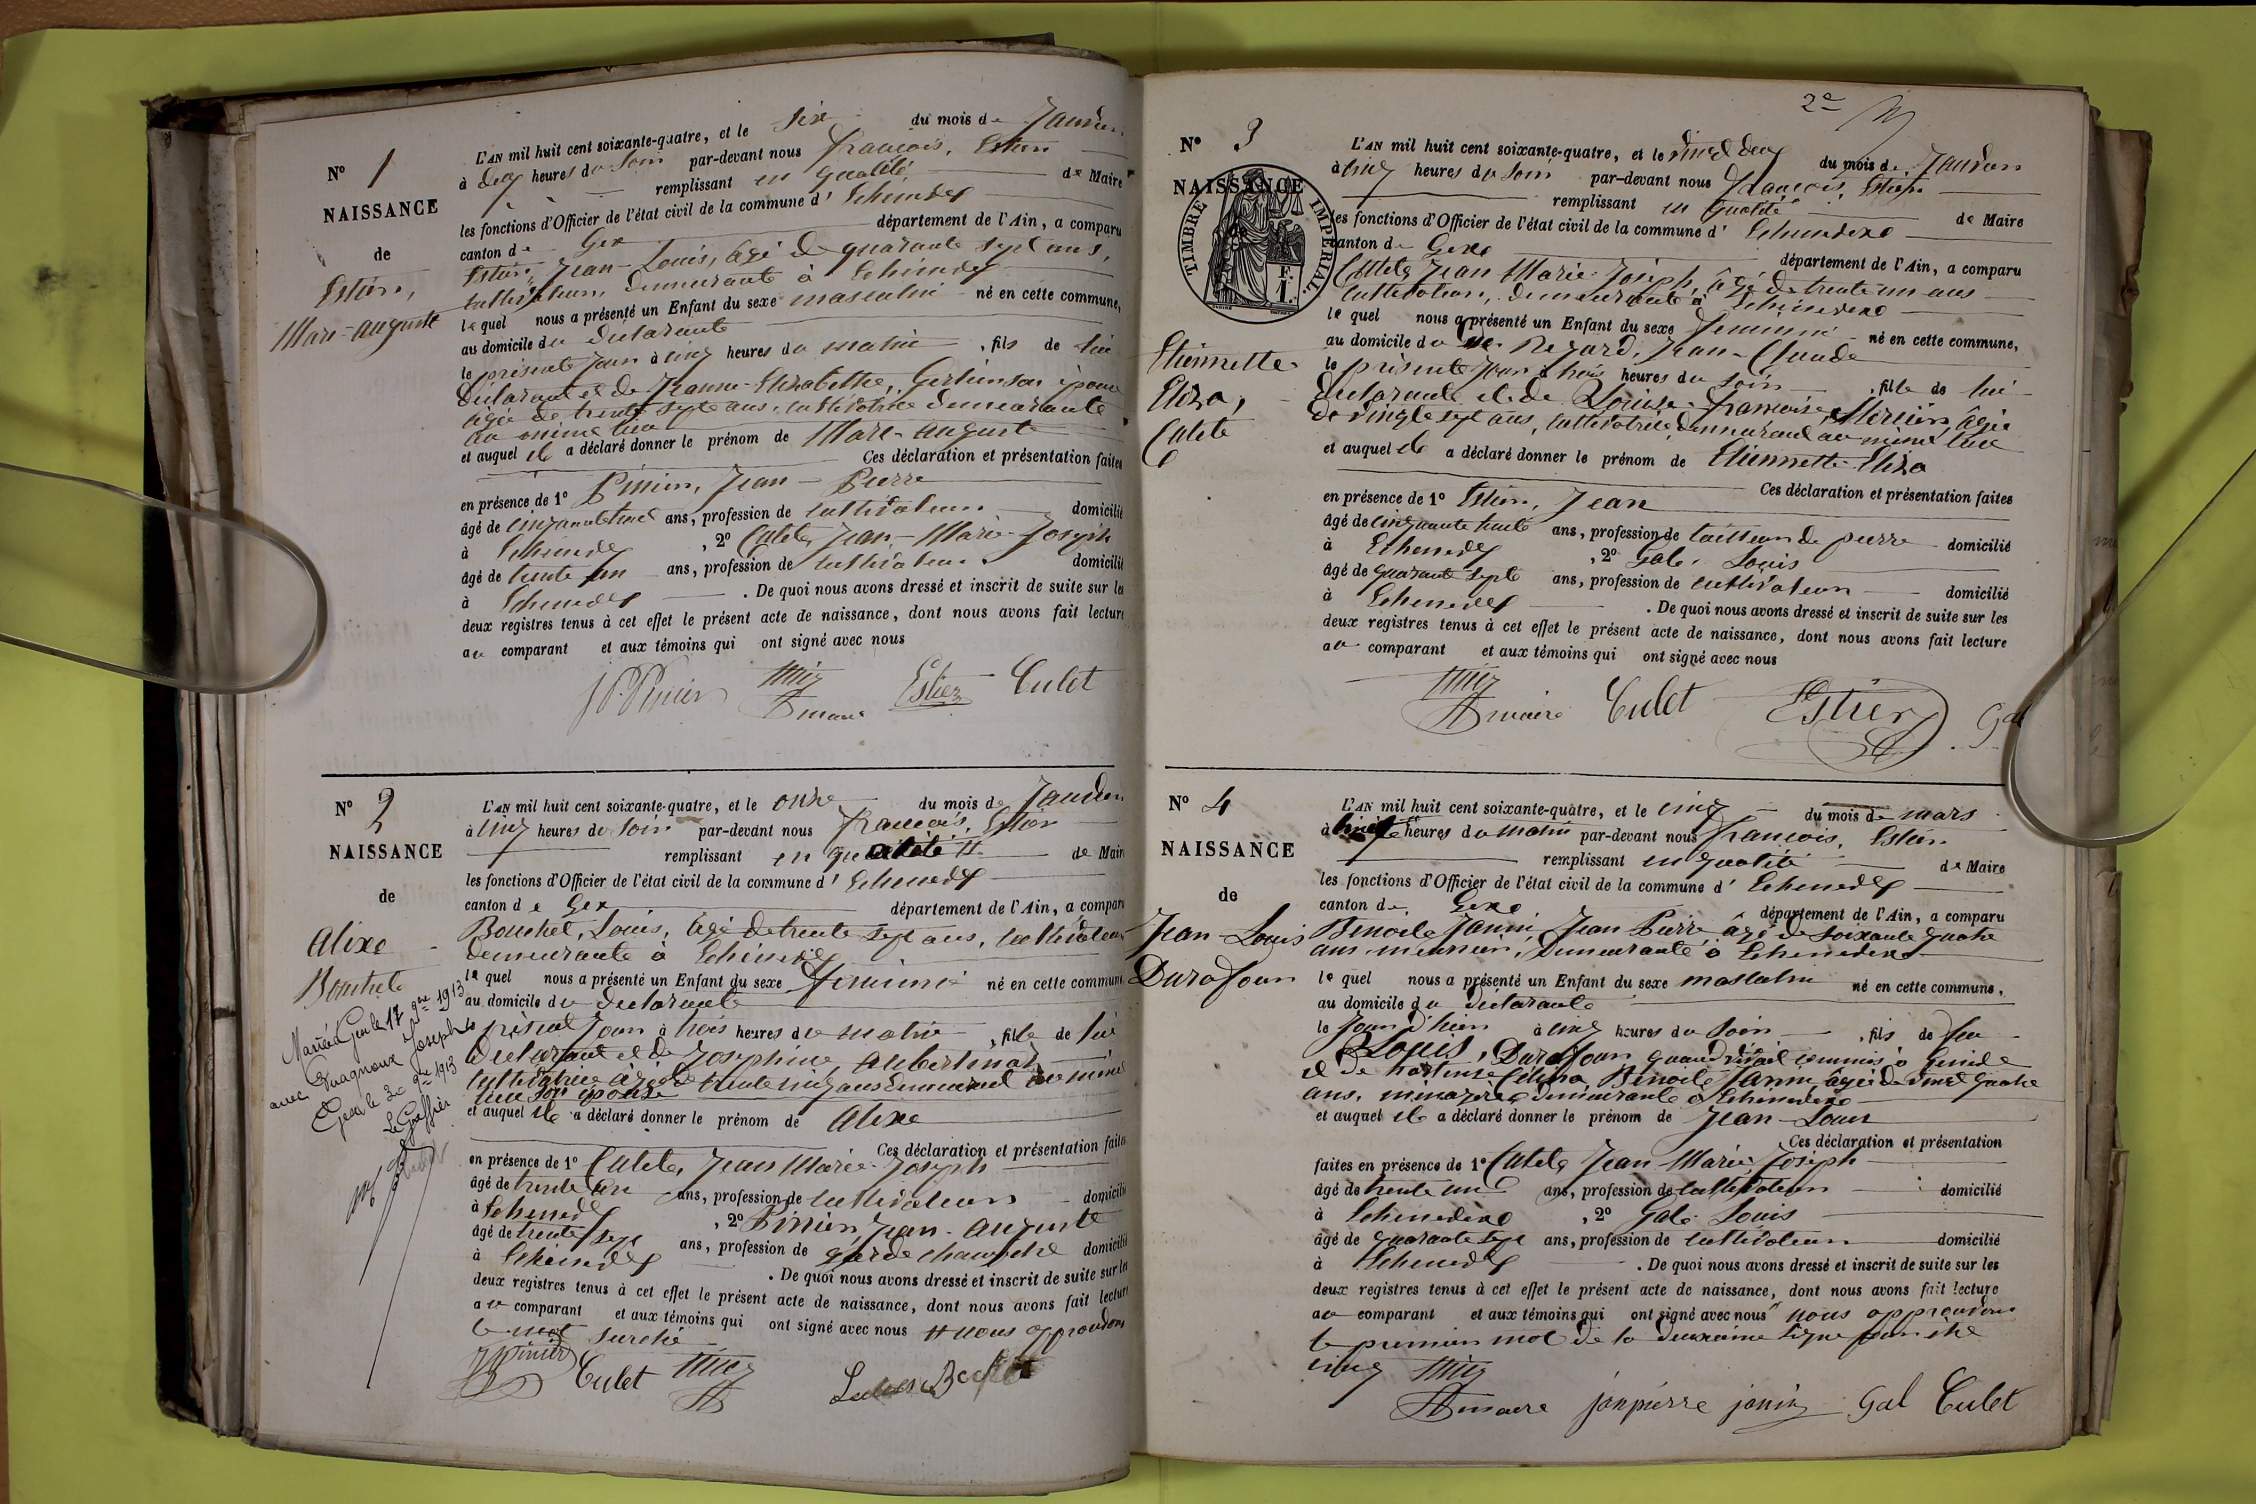 N° 1
NAISSANCE
de
Estier,
Marc-Auguste
L'AN mil huit cent soixante-quatre, et le six du mois de Janvier
à deux heures du soir par-devant nous François, Estier
remplissant en qualité de Maire
les fonctions d'Officier de l'état civil de la commune d' Echenevex
canton de Gex département de l'Ain, a comparu
Estier, Jean-Louis, âgé de quarante sept ans,
cultivateur, demeurant à Echenevex
lequel nous a présenté un Enfant du sexe masculin né en cette commune,
au domicile du déclarant
le présent jour à cinq heures du matin, fils de lui
déclarant et de Jeanne-Elisabethe, épouse
âgée de trente sept ans, cultivatrice demeurante
au même lieu
et auquel il a déclaré donner le prénom de Marc-Auguste
Ces déclaration et présentation faites
en présence de 1° Pinier, Jean-Pierre
âgé de ans, profession de cultivateur domicilié
à Echenevex, 2° Culet, Jean-Marie-Joseph
âgé de trente un ans, profession de cultivateur domicilié
à Echenevex. De quoi nous avons dressé et inscrit de suite sur les
deux registres tenus à cet effet le présent acte de naissance, dont nous avons fait lecture
au comparant et aux témoins qui ont signé avec nous
JP Pinier maire Estier Culet
N° 2
NAISSANCE
de
Alixe
Bouchet
Mariée à Gex le 17 9bre 1913
avec Joseph
Gex, le 20 9bre 1913
Le Greffier
L'AN mil huit cent soixante-quatre, et le onze du mois de Janvier
à cinq heures du soir par-devant nous François, Estier
remplissant en qualité # de Maire
les fonctions d'Officier de l'état civil de la commune d' Echenevex
canton de Gex département de l'Ain, a comparu
Bouchet, Louis, âgé de trente sept ans, cultivateur
demeurante à Echenevex
lequel nous a présenté un Enfant du sexe féminin né en cette commune
au domicile du déclarant
le présent jour à trois heures du matin, fille de lui
déclarant et de Josephine,
cultivatrice âgée de trente cinq ans demeurant au même
lieu son épouse
et auquel il a déclaré donner le prénom de Alixe
Ces déclaration et présentation faites
en présence de 1° Culet, Jean Marie-Joseph
âgé de trente un ans, profession de cultivateur domicilié
à Echenevex, 2° Pinier, Jean-Auguste
âgé de trente sept ans, profession de garde champêtre domicilié
à Echenevex. De quoi nous avons dressé et inscrit de suite sur les
deux registres tenus à cet effet le présent acte de naissance, dont nous avons fait lecture
au comparant et aux témoins qui ont signé avec nous # nous approuvons
le mot
Pinier Culet
2e
N° 3
NAISSANCE
de
TIMBRE IMPÉRIAL
Etiennette
Eliza,
Culet
L'AN mil huit cent soixante-quatre, et le vingt deux du mois de Janvier
à cinq heures du soir par-devant nous François, Estier
remplissant en qualité de Maire
les fonctions d'Officier de l'état civil de la commune d' Echenevex
canton de Gex département de l'Ain, a comparu
Culet, Jean Marie-Joseph, âgé de trente un ans
cultivateur, demeurante à Echenevex
lequel nous a présenté un Enfant du sexe féminin né en cette commune,
au domicile du Sr. Regard, Jean-Claude
le présent jour à trois heures du soir, fille de lui
déclarant et de Louise-Françoise, Mercier, âgée
de vingt sept ans, cultivatrice, demeurant au même lieu
et auquel il a déclaré donner le prénom de Etiennette-Eliza
Ces déclaration et présentation faites
en présence de 1° Estier, Jean
âgé de cinquante huit ans, profession de tailleur de pierre domicilié
à Echenevex, 2° Gal, Louis
âgé de quarante sept ans, profession de cultivateur domicilié
à Echenevex. De quoi nous avons dressé et inscrit de suite sur les
deux registres tenus à cet effet le présent acte de naissance, dont nous avons fait lecture
au comparant et aux témoins qui ont signé avec nous
maire Culet Estier Gal
N° 4
NAISSANCE
de
Jean-Louis
Durafour
L'AN mil huit cent soixante-quatre, et le cinq du mois de mars
à heures du matin par-devant nous François, Estier
remplissant en qualité de Maire
les fonctions d'Officier de l'état civil de la commune d' Echenevex
canton de Gex département de l'Ain, a comparu
Benoit Janin, Jean Pierre âgé de soixante quatre
ans, meunier, demeurante à Echenevex
lequel nous a présenté un Enfant du sexe masculin né en cette commune,
au domicile du déclarant
le jour d'hier à cinq heures du soir, fils de feu
Louis, Durafour quand vivait commis à Genève
et de Hortense Benoit Janin âgée de vingt quatre
ans, ménagère, demeurante à Echenevex
et auquel il a déclaré donner le prénom de Jean-Louis
Ces déclaration et présentation
faites en présence de 1° Culet, Jean-Marie, Joseph
âgé de trente un ans, profession de cultivateur domicilié
à Echenevex, 2° Gal, Louis
âgé de quarante sept ans, profession de cultivateur domicilié
à Echenevex. De quoi nous avons dressé et inscrit de suite sur les
deux registres tenus à cet effet le présent acte de naissance, dont nous avons fait lecture
au comparant et aux témoins qui ont signé avec nous nous approuvons
le premier mot de la deuxième ligne
cinq
maire janpierre janin Gal Culet